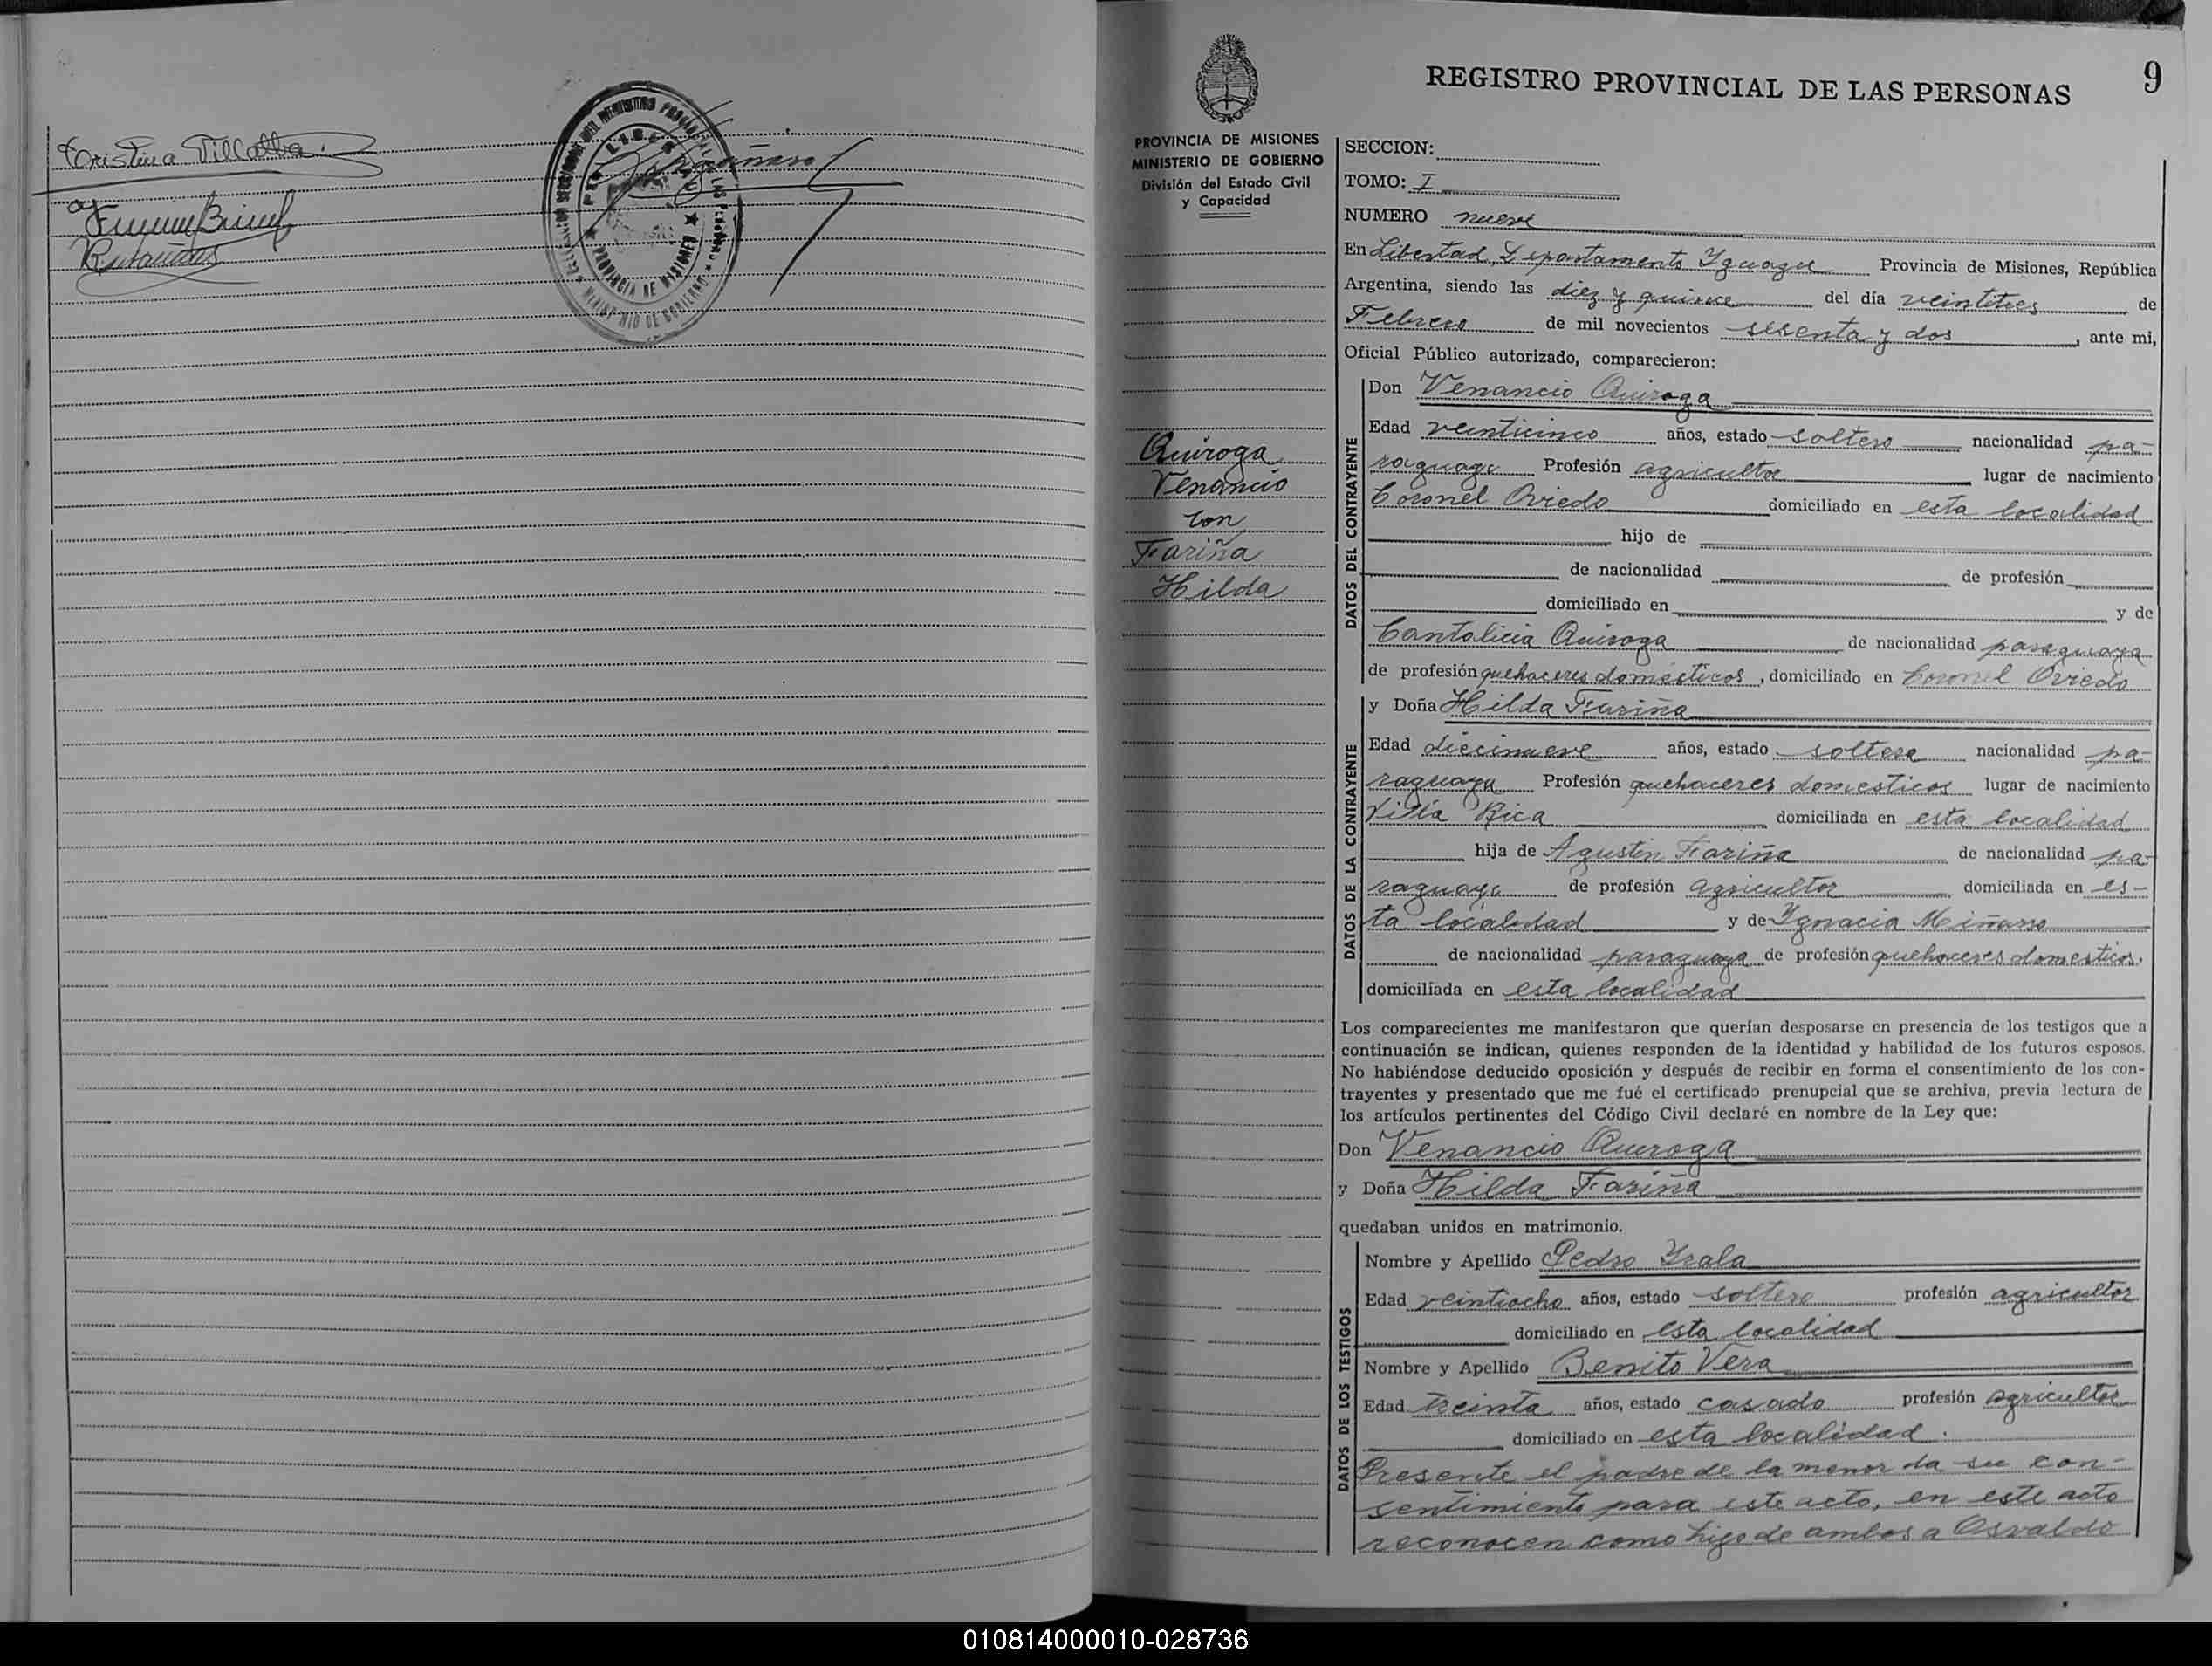 Cristina Villalba
REGISTRO PROVINCIAL DE LAS PERSONAS
9
PROVINCIA DE MISIONES
MINISTERIO DE GOBIERNO
División del Estado Civil
y Capacidad
Quiroga
Venancio
con
Fariña
Hilda
SECCION:
TOMO: I
NUMERO nueve
En Libertad, Departamento Yguazu Provincia de Misiones, República
Argentina, siendo las diez y quince del día veintitres de
Febrero de mil novecientos sesenta y dos, ante mi,
Oficial Público autorizado, comparecieron:
DATOS DEL CONTRAYENTE
Don Venancio Quiroga
Edad veinticinco años, estado soltero nacionalidad pa-
raguayo Profesión agricultor lugar de nacimiento
Coronel Oviedo domiciliado en esta localidad
hijo de
de nacionalidad de profesión
domiciliado en y de
Cantalicia Quiroga de nacionalidad paraguaya
de profesión quehaceres domésticos, domiciliado en Coronel Oviedo
DATOS DE LA CONTRAYENTE
y Doña Hilda Fariña
Edad diecinueve años, estado soltera nacionalidad pa-
raguaya Profesión quehaceres domesticos lugar de nacimiento
Villa Rica domiciliada en esta localidad
hija de Agustin Fariña de nacionalidad pa-
raguayo de profesión agricultor domiciliada en es-
ta localidad y de Ygnacia Miñarro
de nacionalidad paraguaya de profesión quehaceres domesticos.
domiciliada en esta localidad
Los comparecientes me manifestaron que querían desposarse en presencia de los testigos que a
continuación se indican, quienes responden de la identidad y habilidad de los futuros esposos.
No habiéndose deducido oposición y después de recibir en forma el consentimiento de los con-
trayentes y presentado que me fué el certificado prenupcial que se archiva, previa lectura de
los artículos pertinentes del Código Civil declaré en nombre de la Ley que:
Don Venancio Quiroga
y Doña Hilda Fariña
quedaban unidos en matrimonio.
DATOS DE LOS TESTIGOS
Nombre y Apellido Pedro Yrala
Edad veintiocho años, estado soltero profesión agricultor
domiciliado en esta localidad
Nombre y Apellido Benito Vera
Edad treinta años, estado casado profesión agricultor
domiciliado en esta localidad.
Presente el padre de la menor da su con-
sentimiento para este acto, en este acto
reconocen como hijo de ambos a Osvaldo
010814000010-028736